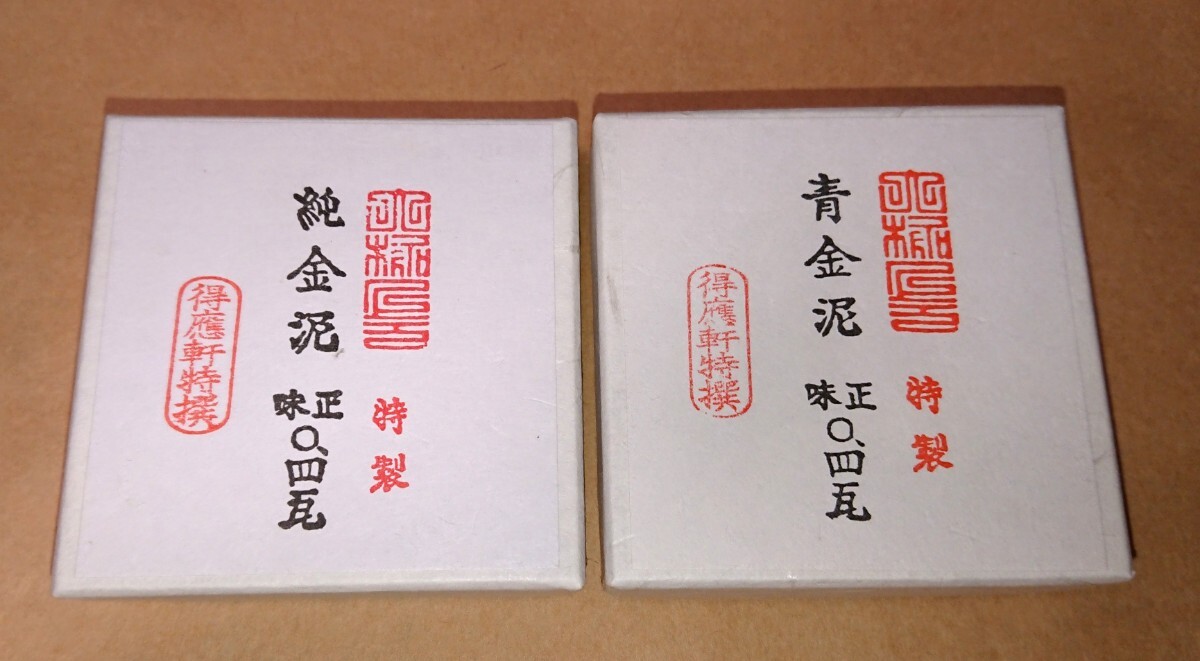 特製
純金泥 正味〇、四瓦
得應軒特撰
特製
青金泥 正味〇、四瓦
得應軒特撰